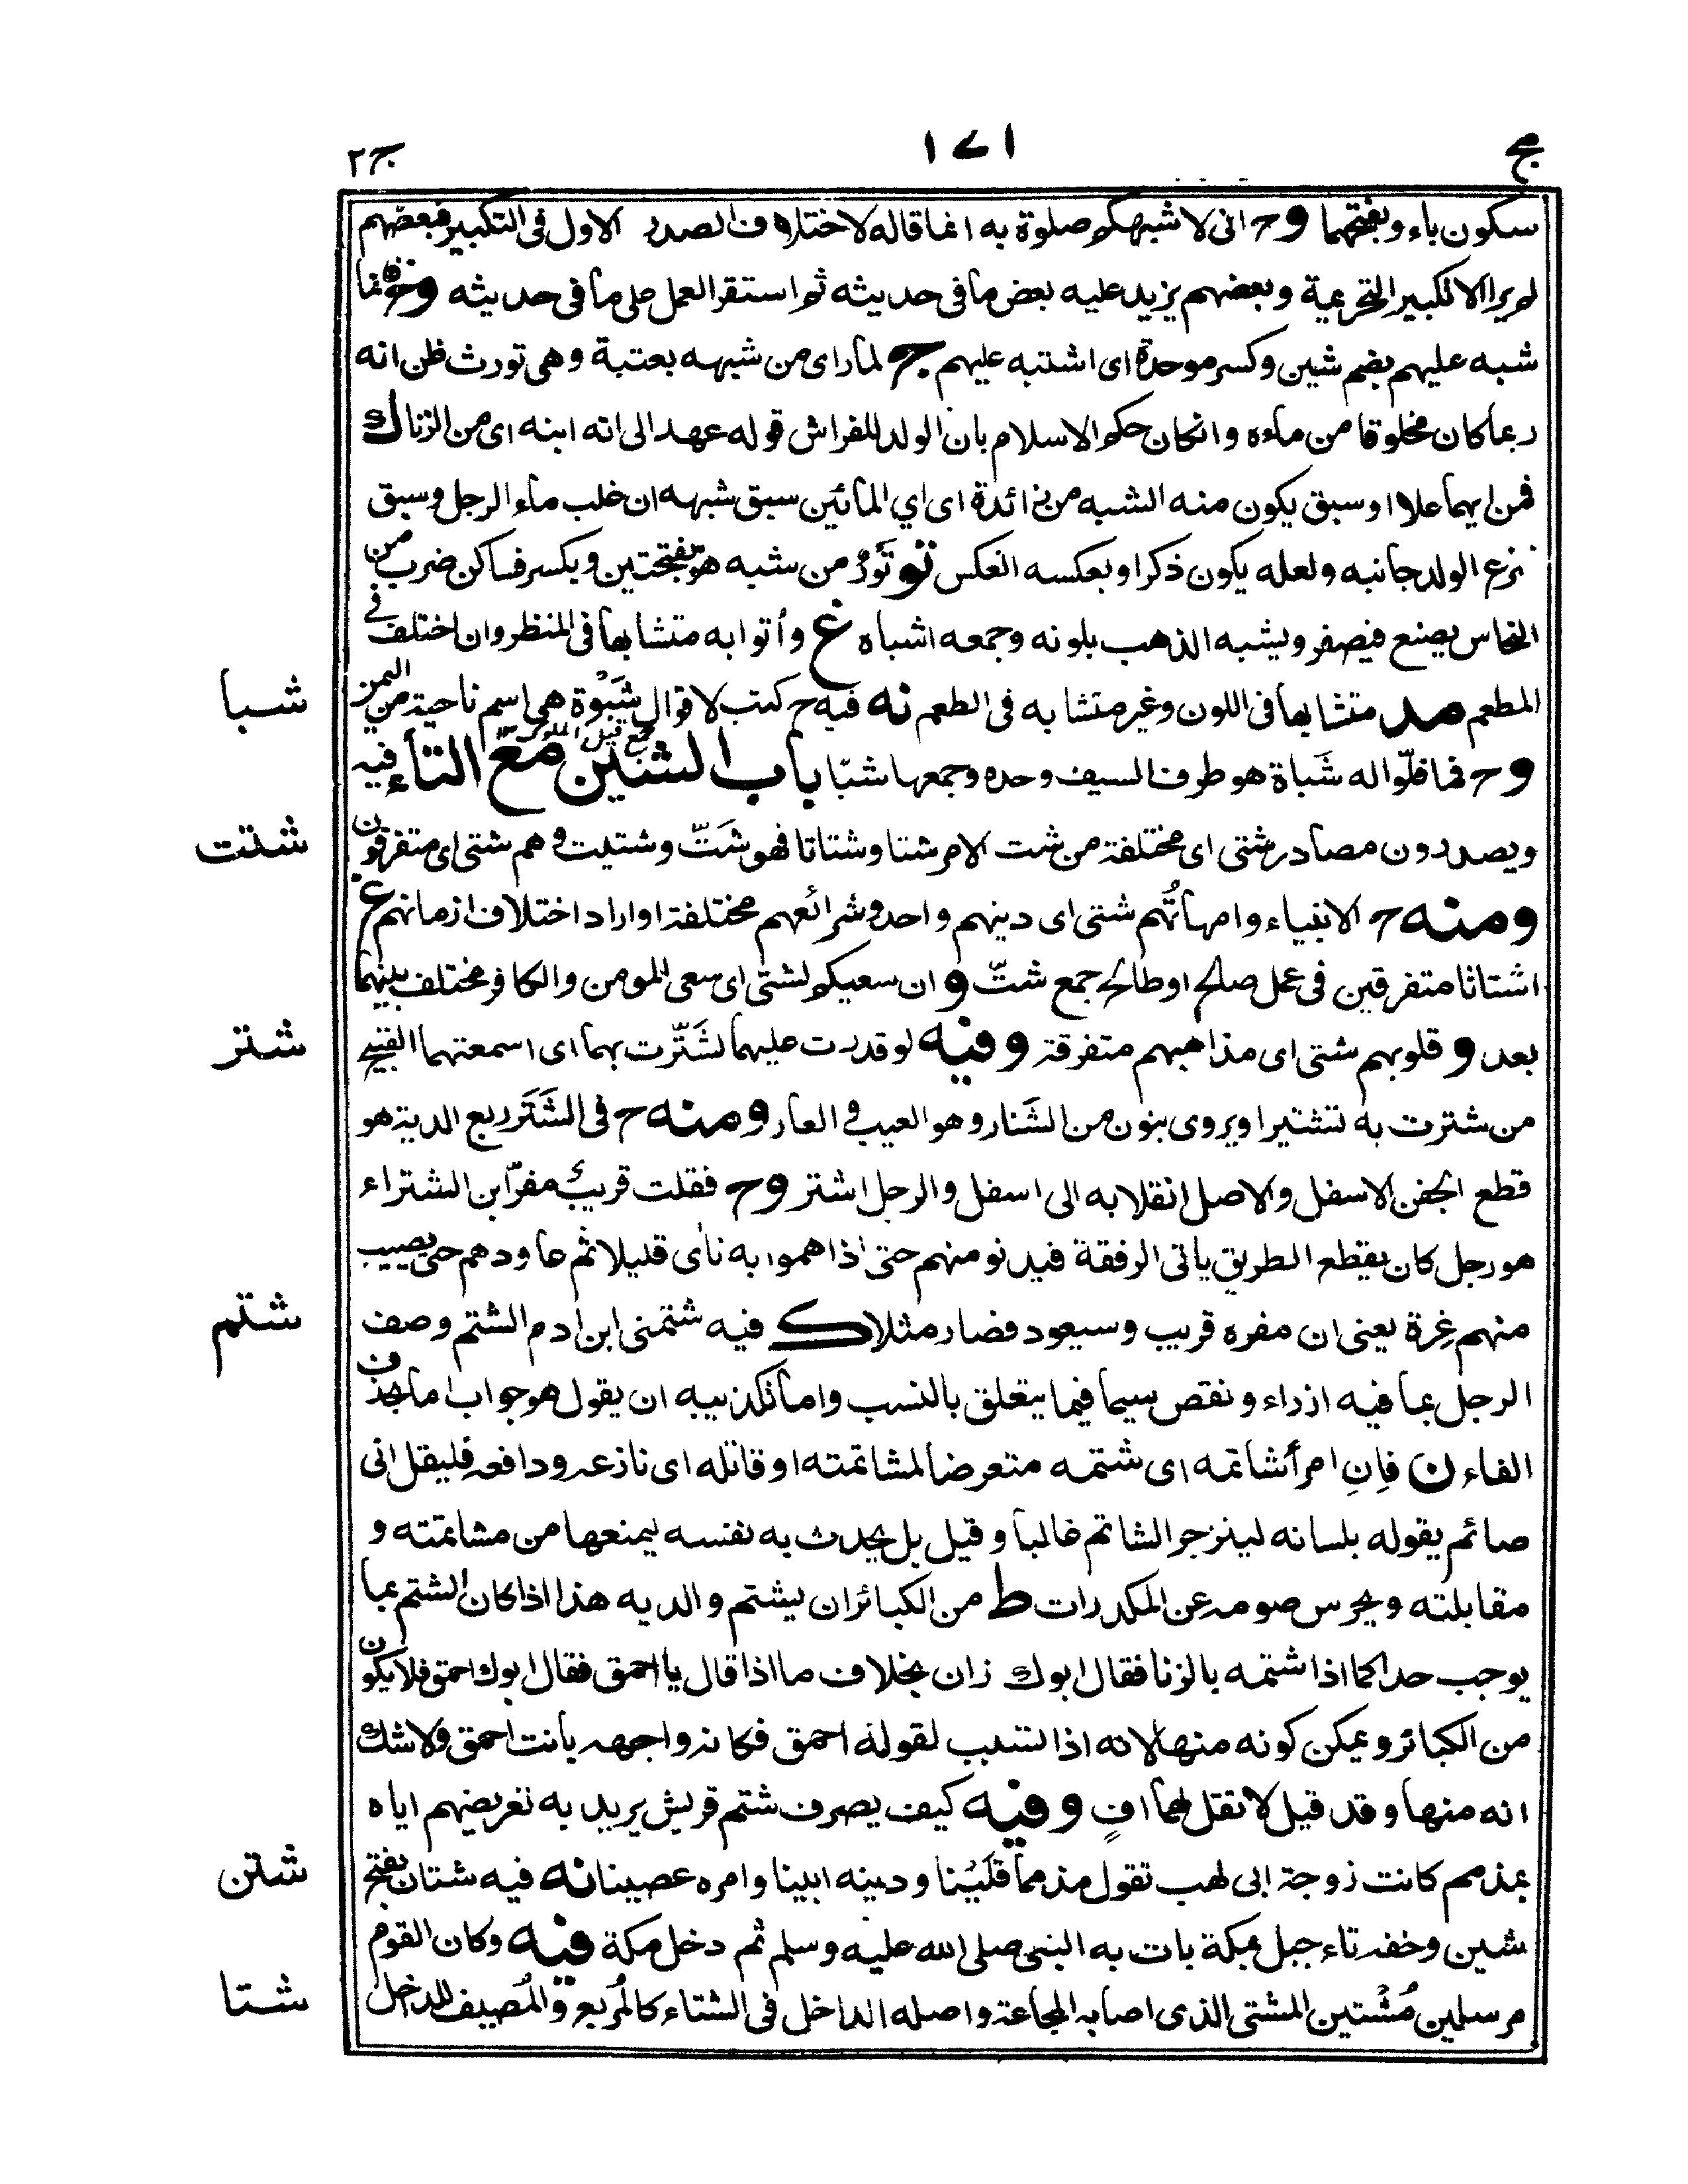 مج ١٧١ ج٢
سكون باء وبفتحهما وح انى لا شبهكم صلوة به انما قاله لاختلاف الصدر الاول فى التكبير فبعضهم
لم ير الا تكبير التحريمة وبعضهم يزيد عليه بعض ما فى حديثه ثم استقر العمل على ما فى حديثه وح فانما
شبه عليهم بضم شين وكسر موحدة اى اشتبه عليهم ج لما راى من شبهه بعتبة وهى تورث ظن انه
ربما كان مخلوقا من ماءه وانكان حكم الاسلام بان الولد للفراش قوله عهد الى انه ابنه اى من الزنا ك
فمن ايهما علا او سبق يكون منه الشبه من زائدة اى اي المائين سبق شبهه ان غلب ماء الرجل وسبق
نزع الولد جانبه ولعله يكون ذكرا وبعكسه العكس تو تَوْرٌ من شبه هو بفتحتين ويكسر فساكن ضرب من
النحاس يصنع فيصفر ويشبه الذهب بلونه وجمعه اشباه غ وأتوا به متشابها فى المنظر وان اختلف فى
المطعم مد متشابها فى اللون وغير متشابه فى الطعم نه فيه ح كتب لاقوال شَبْوَة هى اسم ناحية من اليمن
شبا
وح فما فلّوا له شَباة هو طرف السيف وحده وجمعها شبًا باب الشين مع التاء فيه
جمع قيل الملوك
ويصدرون مصادر شتى اى مختلفة من شت الامر شتا وشتاتا فهو شَتّ وشتيت وهم شتى اى متفرقون
شتت
ومنه ح الانبياء وامهاتُهم شتى اى دينهم واحد وشرائعهم مختلفة او اراد اختلاف ازمانهم غ
اشتاتا متفرقين فى عمل صالح او طالح جمع شتّ و ان سعيكم لشتى اى سعى المومن والكافر مختلف بينهما
بعد و قلوبهم شتى اى مذاهبهم متفرقة وفيه لو قدرت عليهما لشَتَّرت بهما اى اسمعتهما القبيح
شتر
من شترت به تشتيرا ويروى بنون من الشَنار وهو العيب و العار ومنه ح فى الشَتَر ربع الدية هو
قطع الجفن الاسفل والاصل انقلابه الى اسفل والرجل اشتر وح فقلت قريب مفرّ ابن الشتراء
هو رجل كان يقطع الطريق ياتى الرفقة فيدنو منهم حتى اذا هموا به ناى قليلا ثم عاودهم حتى يصيب
منهم غِرة يعنى ان مفره قريب وسيعود فصار مثلا ك فيه شتمنى ابن ادم الشتم وصف
شتم
الرجل بما فيه ازراء ونقص سيما فيما يتعلق بالنسب واما تكذيبه ان يقول هو جواب اما بحذف
الفاء ن فإن امرأ شاتمه اى شتمه متعرضا لمشاتمته او قاتله اى نازعه ودافعه فليقل انى
صائم يقوله بلسانه لينزجر الشاتم غالبا وقيل بل يحدث به نفسه ليمنعها من مشاتمته و
مقابلته ويحرس صومه عن المكدرات ط من الكبائر ان يشتم والديه هذا اذا كان الشتم بما
يوجب حدا كما اذا شتمه بالزنا فقال ابوك زان بخلاف ما اذا قال يا احمق فقال ابوك احمق فلا يكون
من الكبائر ويمكن كونه منها لانه اذا تسبب لقوله احمق فكانه واجهه بانت احمق ولا شك
انه منها وقد قيل لا تقل لهما افٍ وفيه كيف يصرف شتم قريش يريد به تعريضهم اياه
بمذمم كانت زوجة ابى لهب تقول مذمما قَلَيْنا ودينه ابينا وامره عصينا نه فيه شتان بفتح
شتن
شين وخفة تاء جبل بمكة بات به النبى صلى الله عليه وسلم ثم دخل مكة فيه وكان القوم
مرسلين مُشْتين المشتى الذى اصابه المجاعة واصله الداخل فى الشتاء كالمُربع و المُصيف للداخل
شتا